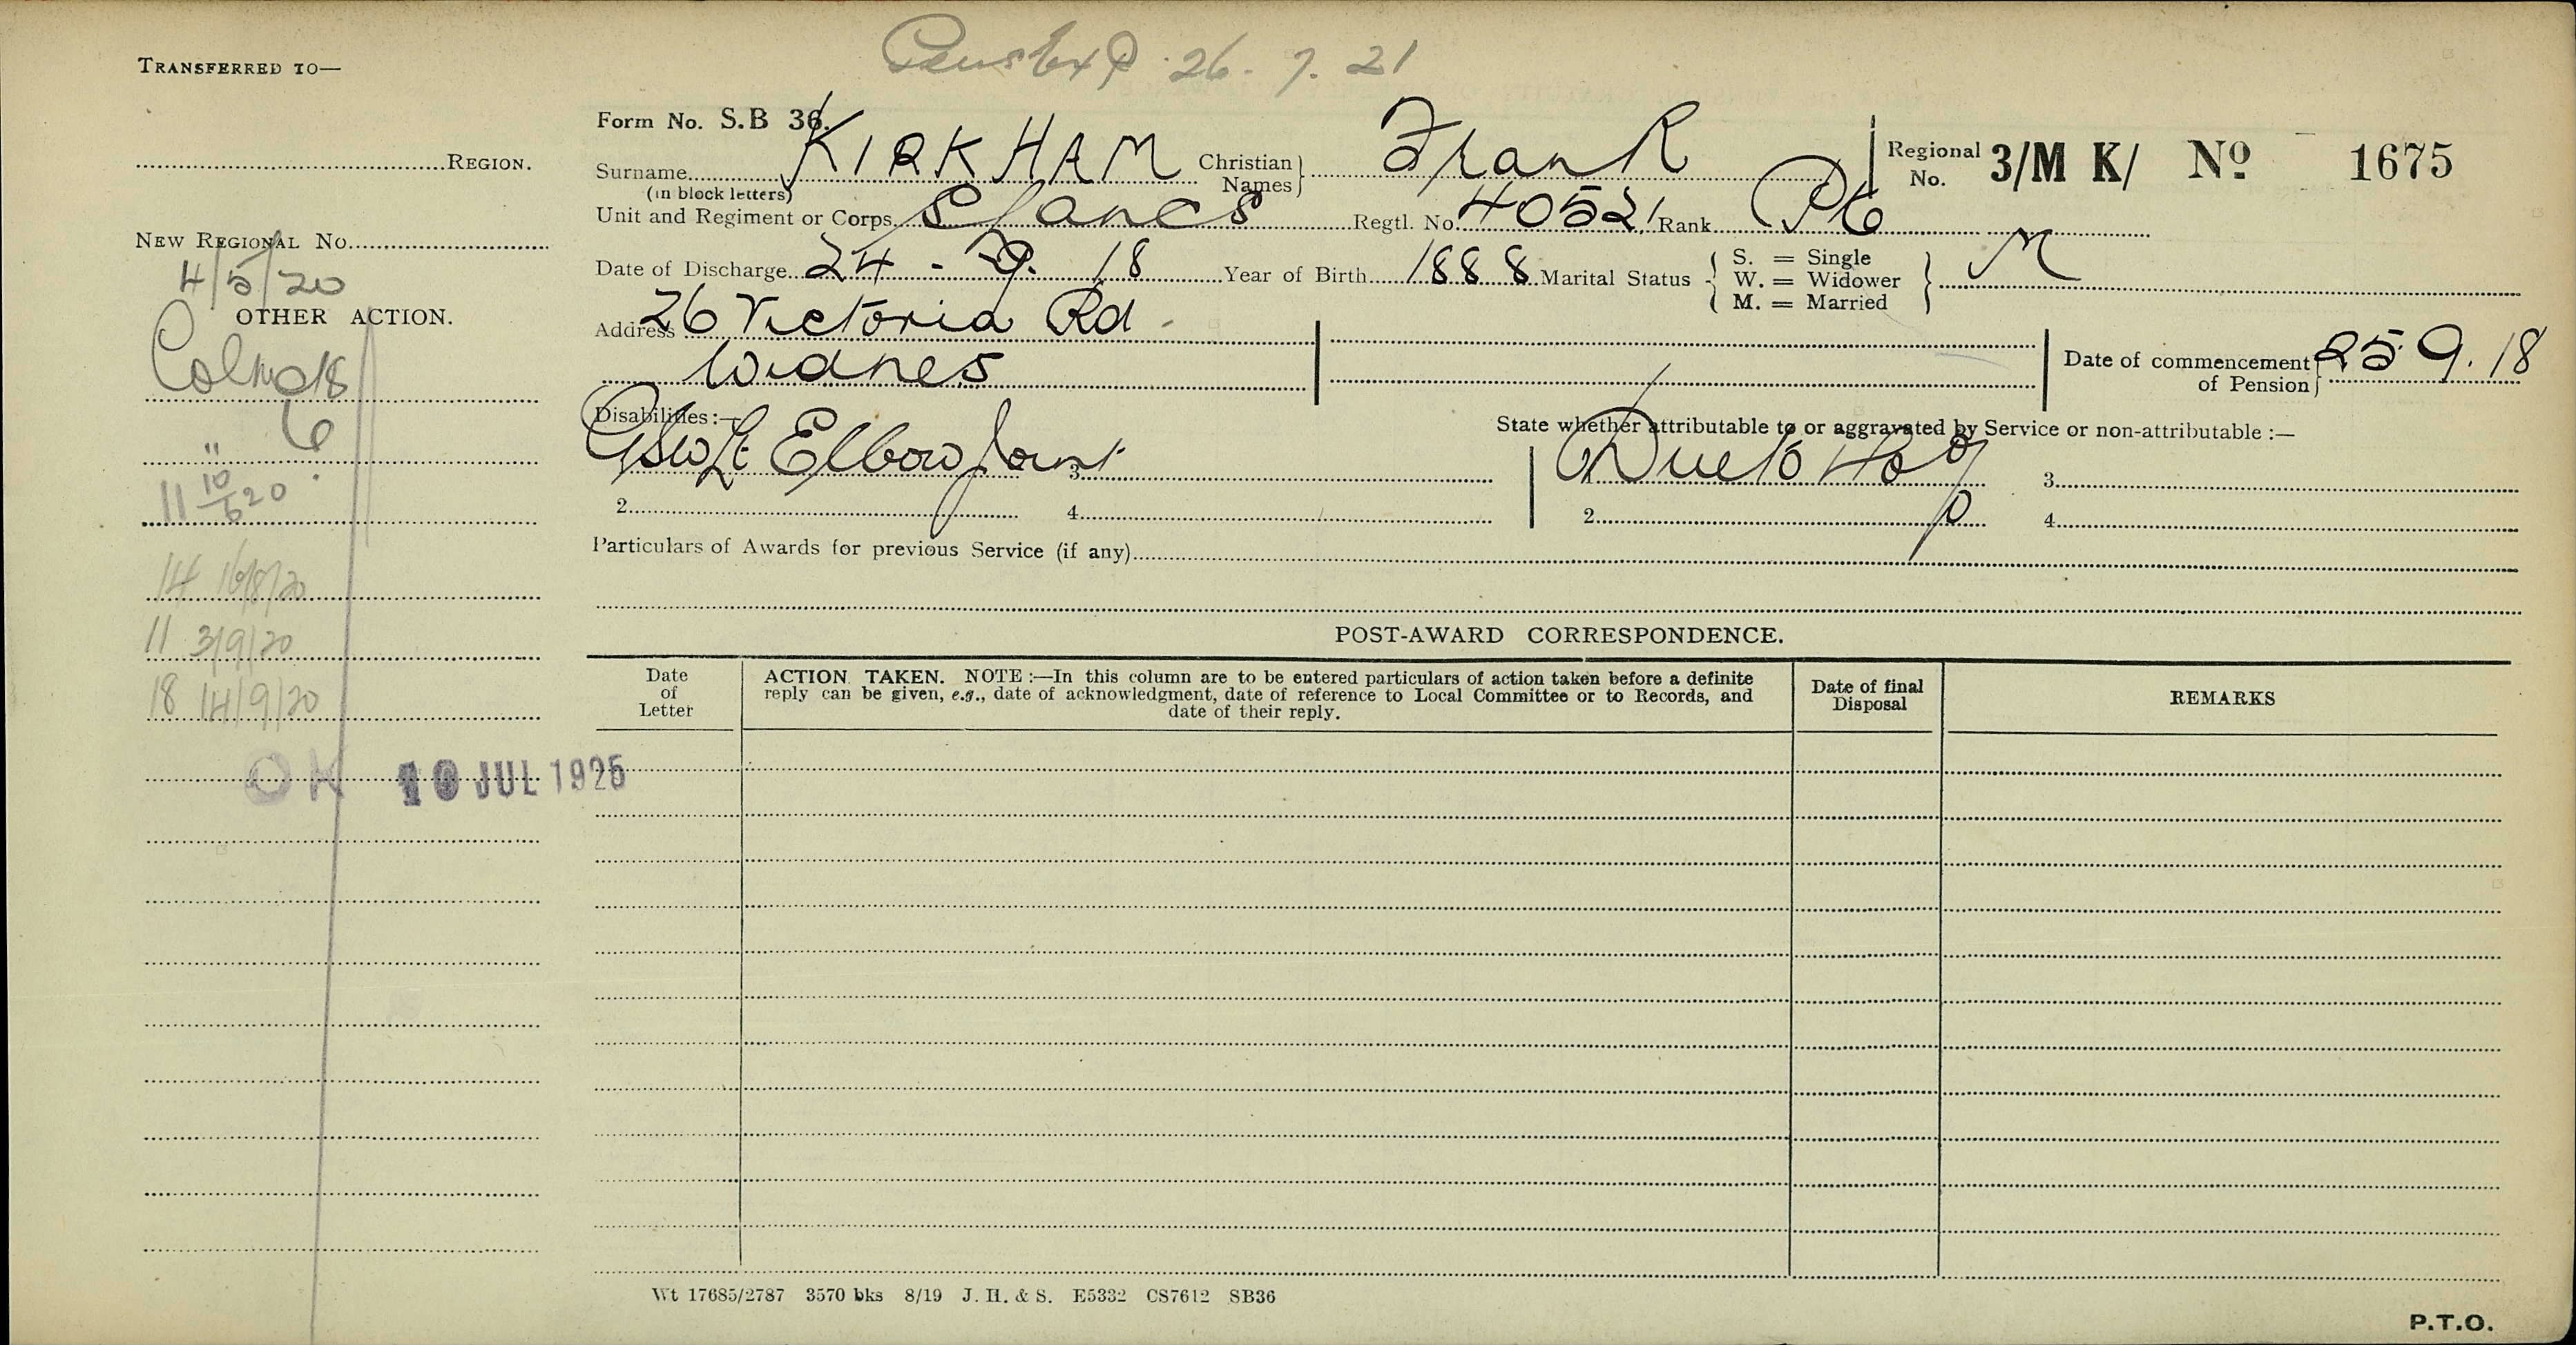 TRANSFERRED TO—
26. 7. 21
Form No. S.B 36.
Surname KIRKHAM Christian Names Frank Regional No. 3/M K/ No 1675
(in block letters)
REGION.
Unit and Regiment or Corps S Lancs Regtl. No. 40521 Rank Pte
NEW REGIONAL No.
4/5/20
Date of Discharge 24 - 9. 18 Year of Birth 1888 Marital Status { S. = Single W. = Widower M. = Married } M
OTHER ACTION.
Address 26 Victoria Rd
Widnes
Date of commencement of Pension 25 9. 18
Disabilities:—
GSW Lt Elbow Joint 3
2 4
State whether attributable to or aggravated by Service or non-attributable :—
1 Due to 3
2 4
"
11 10/6 20
14 16/8/20
11 3/9/20
18 14/9/20
OK 10 JUL 1925
Particulars of Awards for previous Service (if any)
POST-AWARD CORRESPONDENCE.
Date of Letter
ACTION TAKEN. NOTE :—In this column are to be entered particulars of action taken before a definite
reply can be given, e.g., date of acknowledgment, date of reference to Local Committee or to Records, and
date of their reply.
Date of final Disposal
REMARKS
Wt 17685/2787 3570 bks 8/19 J. H. & S. E5332 CS7612 SB36
P.T.O.